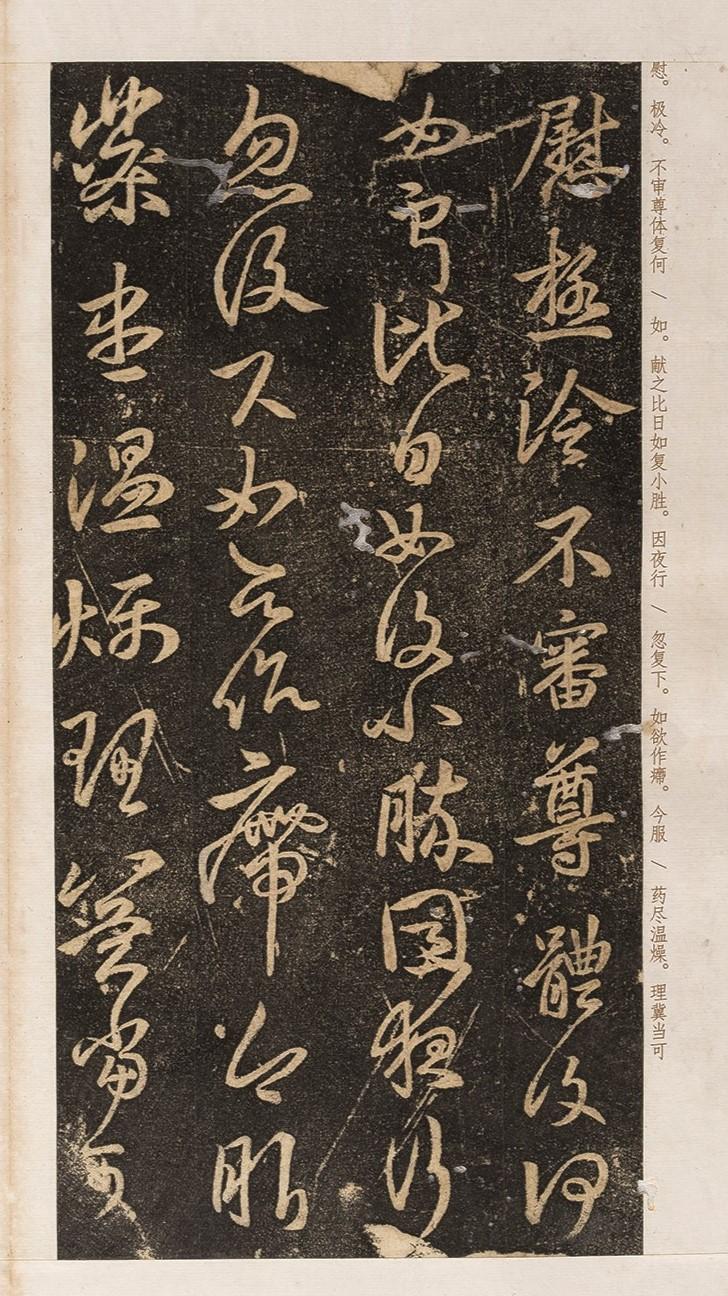 慰。极冷。不审尊体复何 / 如。献之比日如复小胜。因夜行 / 忽复下。如欲作㿃。今服 / 药尽温燥。理冀当可
慰極冷不審尊體復何
如比日如復小勝因夜行
忽復下如欲作㿃今服
藥盡温燥理冀當可